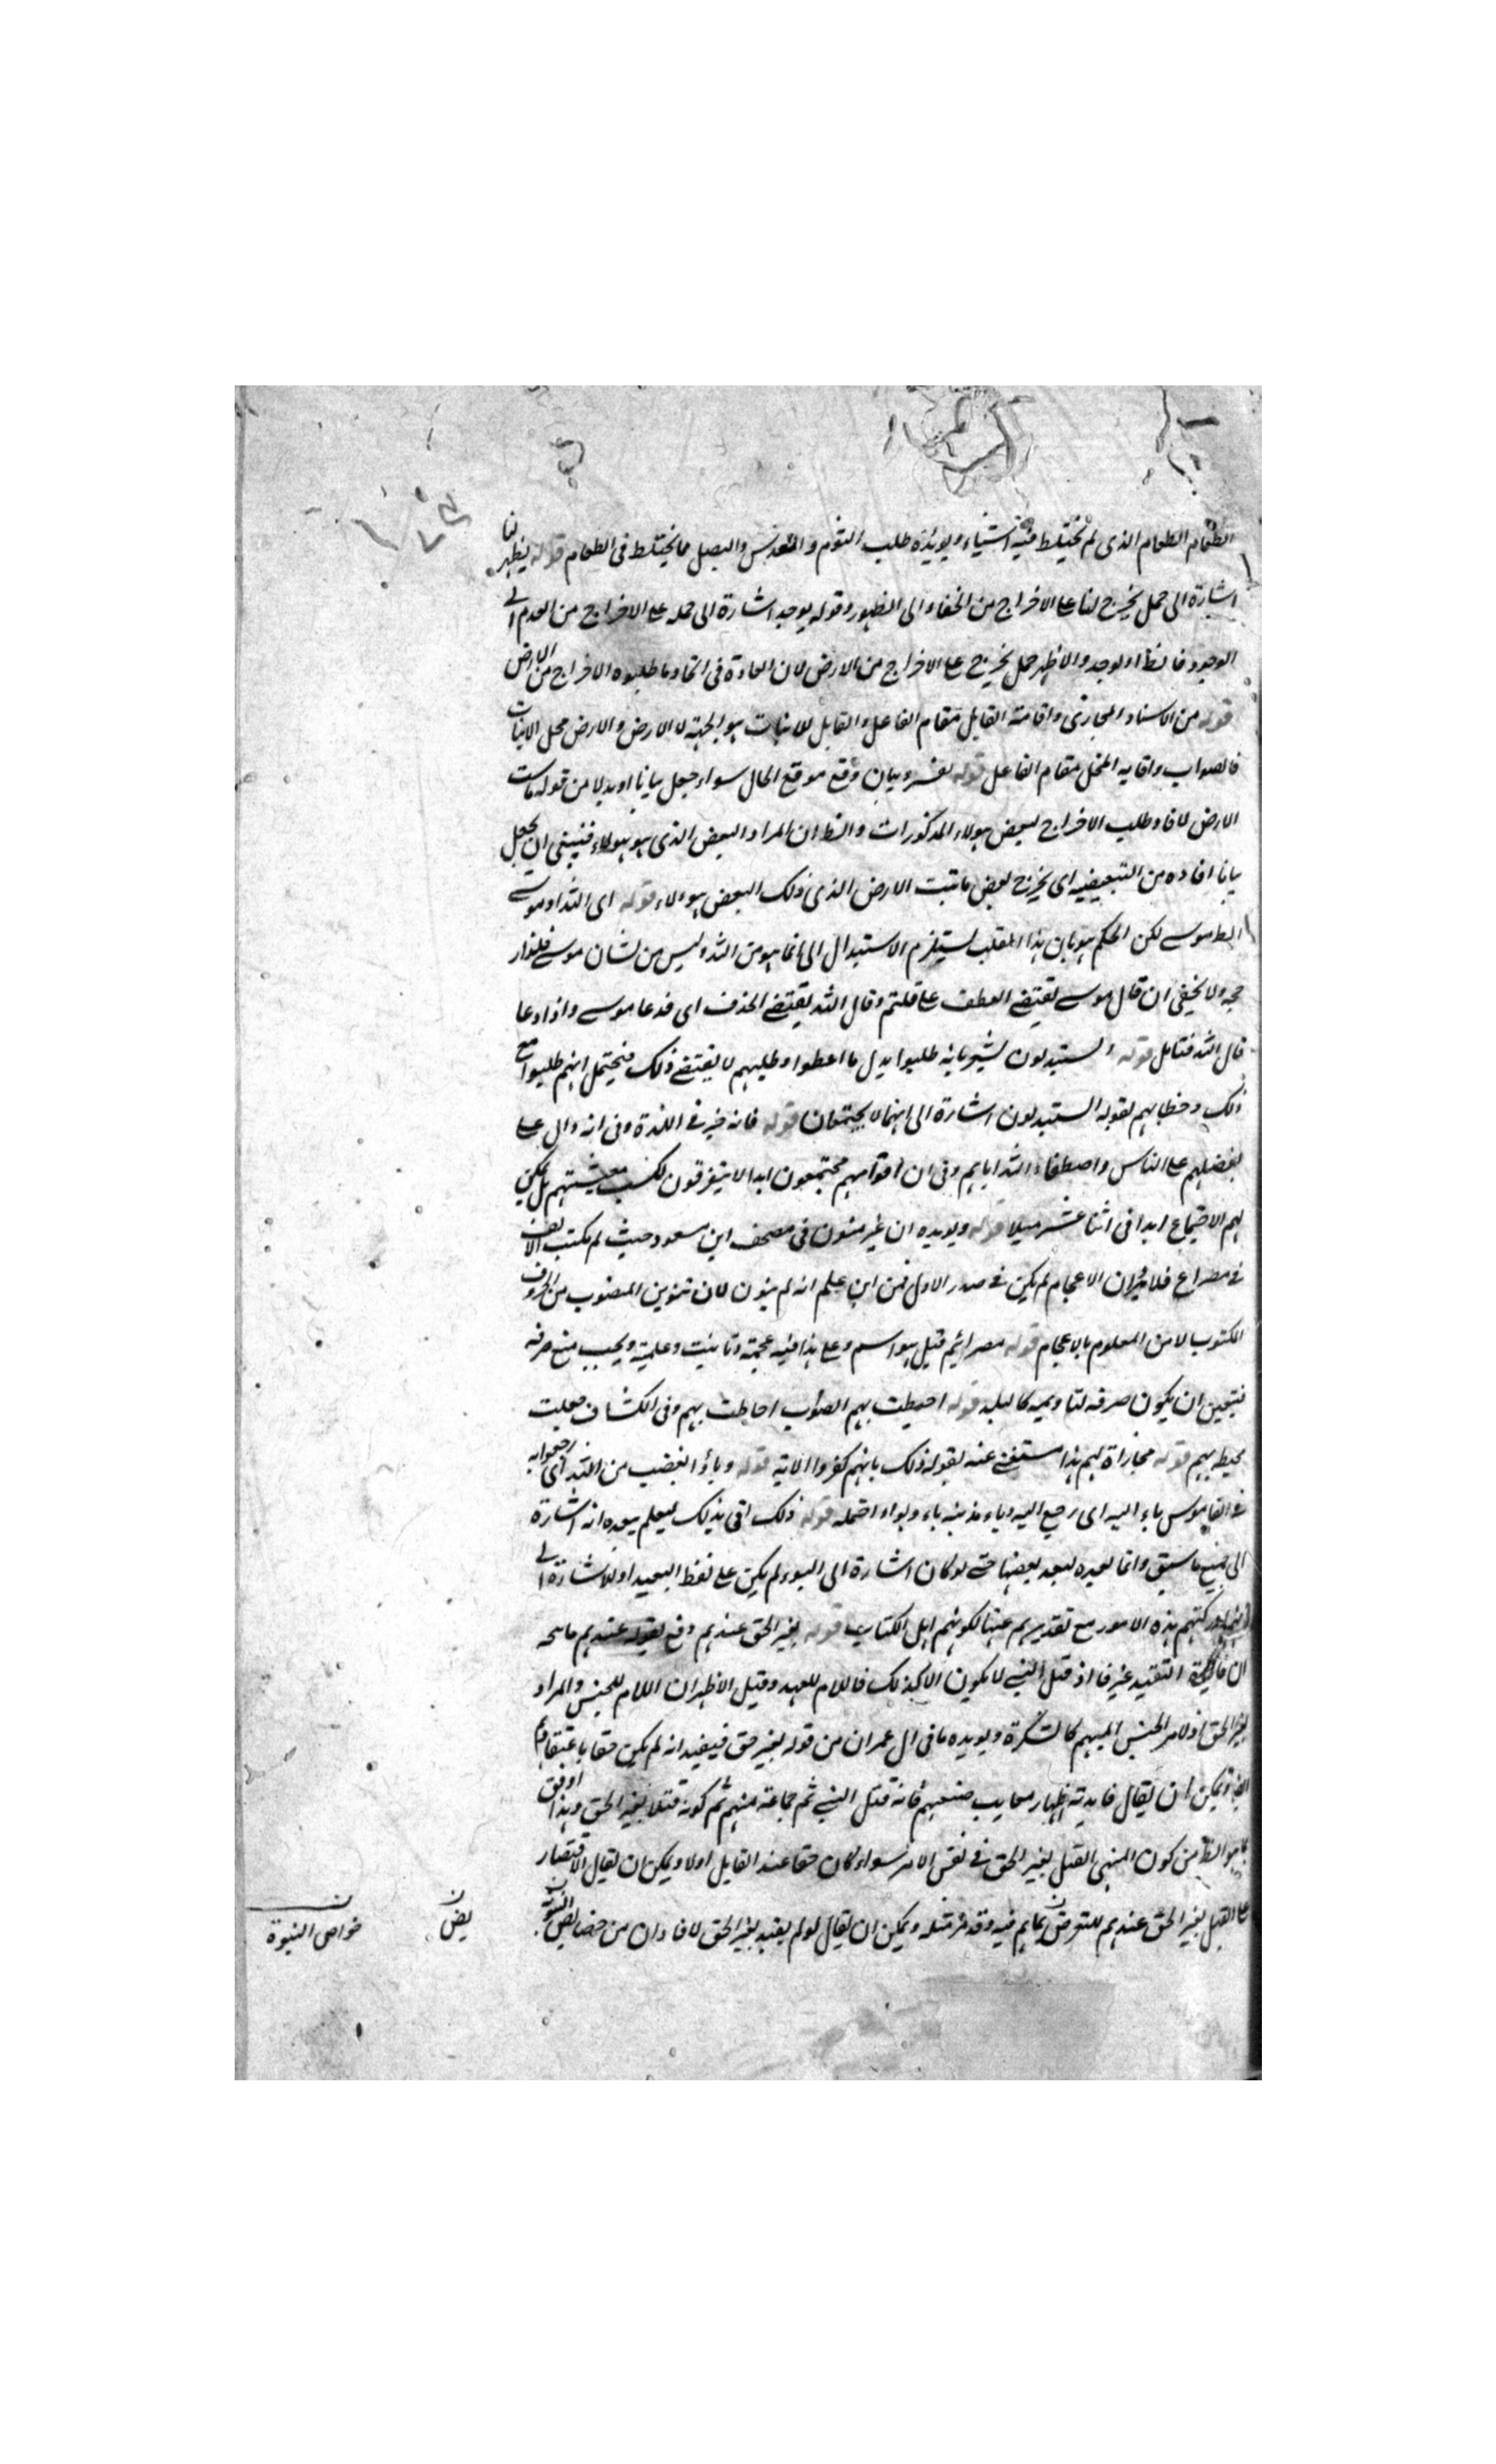 الطعام الطعام الذى لم يختلط فيه اشياء ويويده طلب الثوم والعدس والبصل مما يختلط فى الطعام قوله يظهر لنا
اشارة الى حمل يخرج لنا على الاخراج من الخفاء الى الظهور وقوله يوجد اشارة الى حمله على الاخراج من العدم الى
الوجود فالظ او يوجد والاظهر حمل يخرج على الاخراج من الارض لان العادة فى اتخاد ما طلبوه الاخراج من الارض
قوله من الاسناد المجازى واقامة القابل مقام الفاعل والقابل للانبات هو الحبة لا الارض والارض محل الانبات
فالصواب واقامه المحل مقام الفاعل قوله تفسير وبيان وقع موقع الحال سواء جعل بيانا او بدلا من قوله ما تنبت
الارض لافاد طلب الاخراج لبعض هولاء المذكورات والظ ان المراد البعض الذى هو هولاء فينبغى ان يجعل
بيانا افاده من التبعيضيه اى يخرج بعض ما تنبت الارض الذى ذلك البعض هولاء قوله اى الله او موسى
الظ موسے لكن الحكم هو بان هذا القلب يستلزم الاستبدال الى انما هو من الله وليس من شان موسے فلذا
ولا يخفى ان قال موسے يقتضے العطف على قلتم وقال الله يقتضے الحذف اى فدعا موسے واذا دعا
قال الله فتامل قوله اتستبدلون يشير بانه طلبوا بدل ما اعطوا وطلبهم لا يقتضے ذلك فيحتمل انهم طلبوا مع
ذلك وخطابهم بقوله اتستبدلون اشارة الى انهما لا يجتمعان قوله فانه خير فى اللذة وفى انه دال على
تفضيلهم على الناس واصطفاء الله اياهم وفى ان اقوامهم مجتمعون ابدا لا يتفرقون لكسب معيشتهم بل يمكن
لهم الاجتماع ابدا فى اثنا عشر ميلا قوله ويويده ان غير منون فى مصحف ابن مسعود حيث لم يكتب الالف
فى مصراع فلا يرد ان الاعجام لم يكن فى صدر الاول فمن اين علم انه لم ينون لان تنوين المنصوب من الحروف
المكتوب لا من المعلوم بالاعجام قوله مصرائيم قيل هو اسم وعلى هذا فيه عجمة وتانيث وعلمية ويجب منع صرفه
فيتعين ان يكون صرفه لتاويله كالبلد قوله احيطت بهم الصواب احاطت بهم وفى الكشاف جعلت
محيطة بهم قوله مجازاة لهم هذا مستغنے عنه بقوله ذلك بانهم كفروا الاية قوله وباؤا بغضب من الله اى رجعوا به
فى القاموس باء اليه اى رجع اليه وباء بذنبه باء وبواء احتمله قوله ذلك اتى بذلك ليعلم بعده انه اشارة
الى جميع ما سبق وانما بعيده لبعد بعضها حتے لو كان اشارة الى البوء لم يكن على لفظ البعيد او للاشارة الى
هذه الامور مع تقديرهم عنها لكونهم اهل الكتاب قوله بغير الحق عندهم دفع بقوله عندهم
ان فائدة التقييد غير فا اذ قتل النبے لا يكون الا كذلك فاللام للعهد وقيل الاظهر ان اللام للجنس والمراد
بغير الحق اذ لام الجنس المبهم كالنكرة ويويده ما فى ال عمران من قوله بغير حق فيفيد انه لم يكن حقا باعتقادهم
ويمكن ان يقال فايدته اظهار معايب صنيعهم فانه قتل النبے ثم جماعة منهم ثم كونه قتلا بغير الحق وهذا اوفق
بما هو الظ من كون المنهى القتل بغير الحق فى نفس الامر سواء كان حقا عند القايل اولا ويمكن ان يقال الاقتصار
على القتل بغير الحق عندهم للتعرض بما هم فيه وقد مر مثله ويمكن ان يقال لو لم يقيد بغير الحق لافاد ان من خصايص النبوة
يض
خواص النبوة